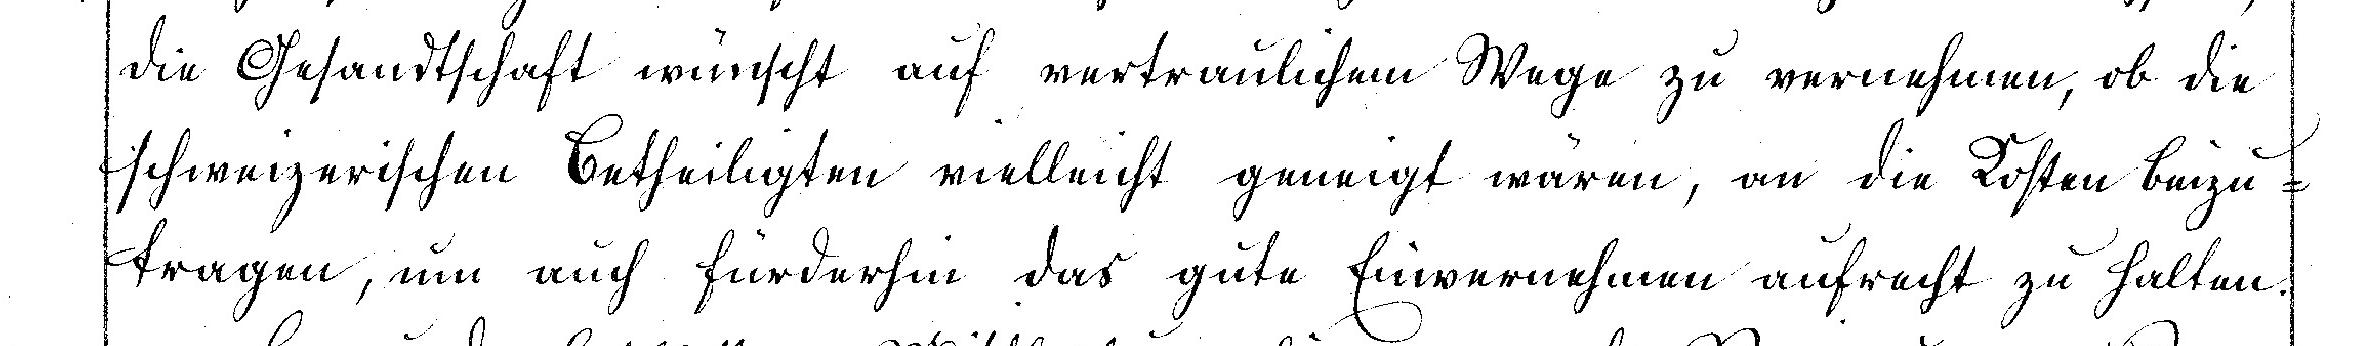 die Gesandtschaft wünscht auf vertraulichem Wege zu vernehmen, ob die
schweizerischen Betheiligten vielleicht geneigt wären, an die Kosten beizu=
tragen, um auch fürderhin das gute Einvernehmen aufrecht zu halten.